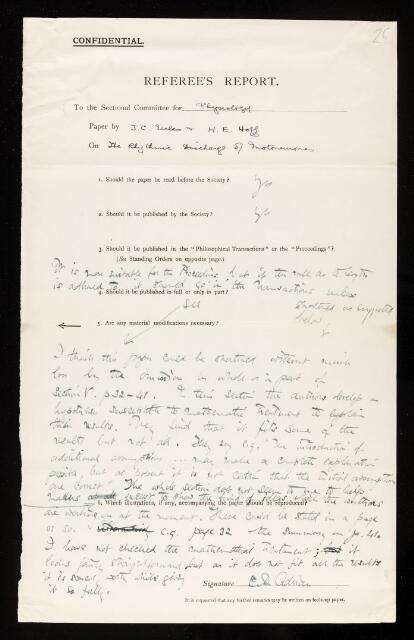 25
CONFIDENTIAL.
REFEREE'S REPORT.
To the Sectional Committee for Physiology
Paper by J. C. Eccles & H. E. Hoff
On The Rhythmic Discharge of Motoneurones
1. Should the paper be read before the Society? Yes
2. Should it be published by the Society? Yes
3. Should it be published in the "Philosophical Transactions" or the "Proceedings"?
(See Standing Orders on opposite page.)
It is more suitable for the Proceedings, but if the rule as to length
is adhered to it should go in the Transactions unless
shortened as suggested
below
4. Should it be published in full or only in part?
See
5. Are any material modifications necessary?
I think this paper could be shortened without much
loss by the omission in whole or in part of
Section V. p 32-41. In this section the authors develop an
hypothesis susceptible to mathematic treatment to explain
their results. They find that it fits some of the
results but not all. They say e.g. "The introduction of
additional assumptions ... may make a complete explanation
possible but at present it is not certain that the initial assumptions
are correct". The whole section does not seem to me to help
matters except to show the kind of ideas which the authors
6. Which illustrations, if any, accompanying the paper should be reproduced?
are working on at the moment. These could be stated in a page
or so. e.g. page 32 + the summary on p. 40
I have not checked the mathematical treatment; it
looks fairly straightforward but as it does not fit all the results
it is scarcely worth while giving
it so fully.
Signature E. D. Adrian
It is requested that any further remarks may be written on foolscap paper.